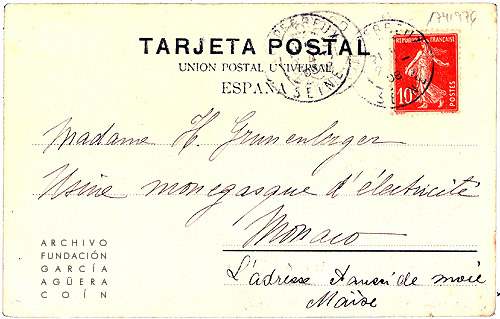 1741976
TARJETA POSTAL
UNION POSTAL UNIVERSAL
ESPAÑA
PERREUX
SEINE
PERREUX
REPUBLIQUE FRANÇAISE
10c
POSTES
Madame H. Grunenberger
Usine monegasque d'électricité
Monaco
L'adresse
de moi
ARCHIVO
FUNDACIÓN
GARCÍA
AGÜERA
COÍN